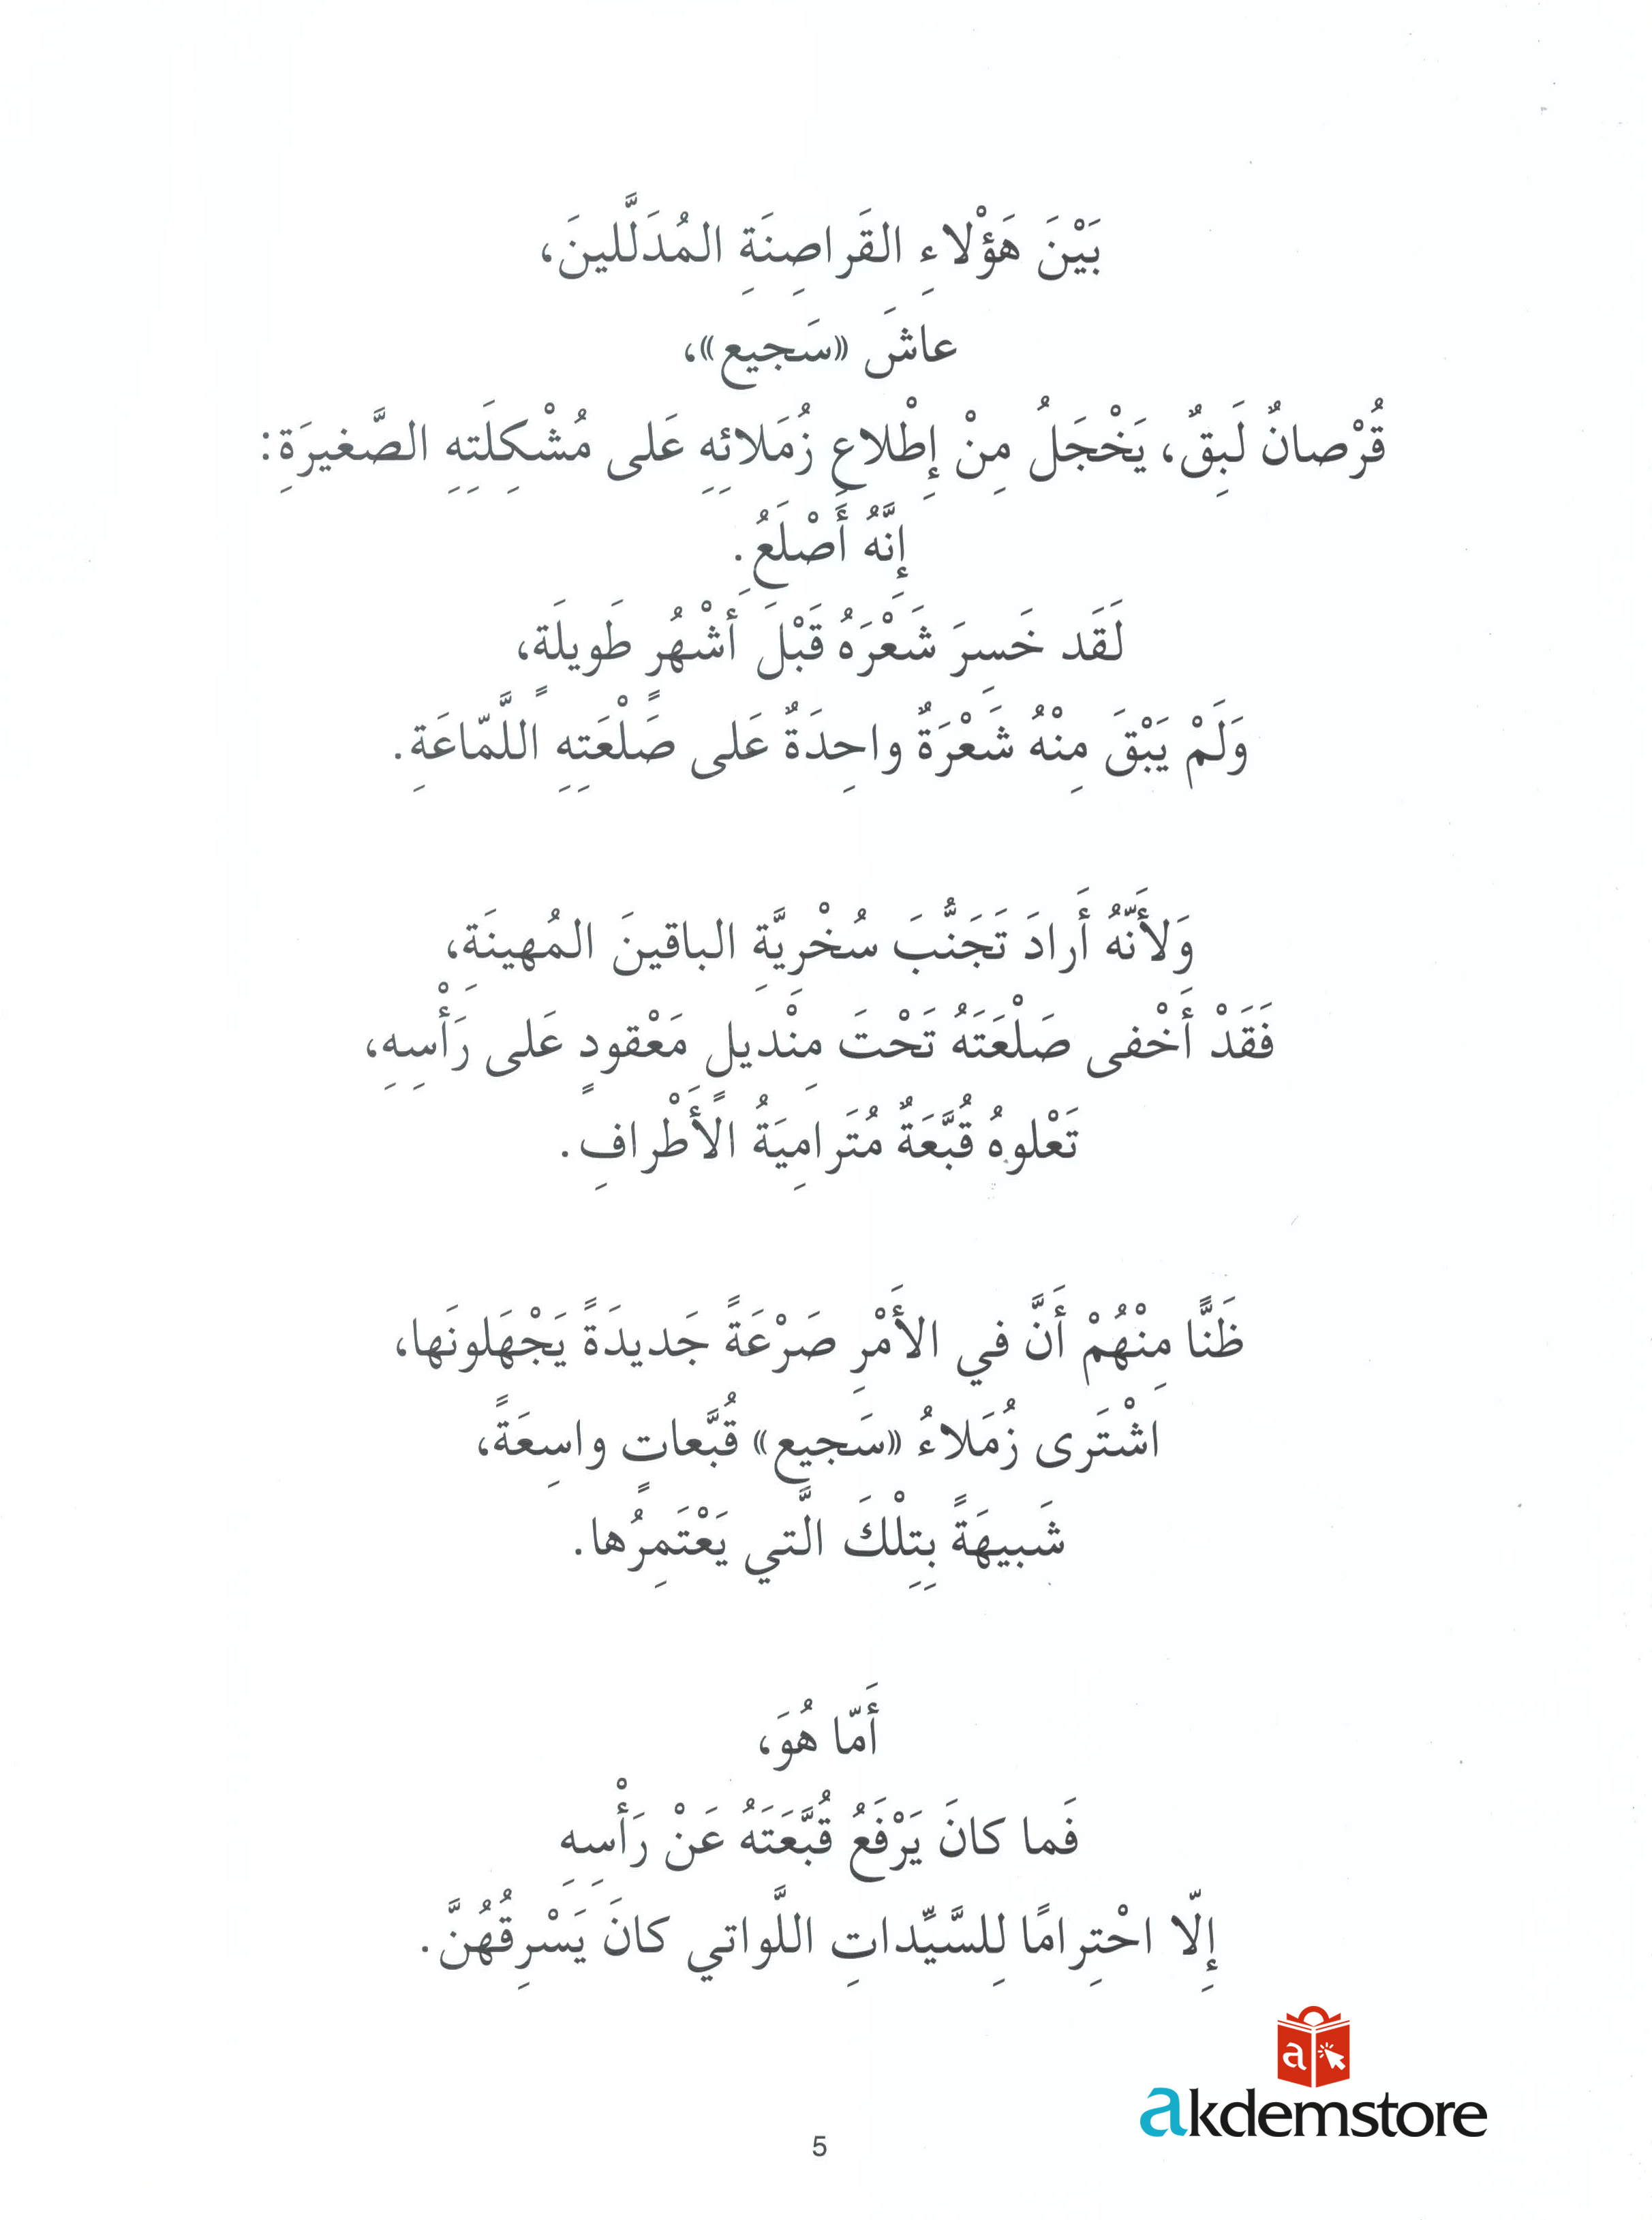 بَيْنَ هَؤْلاءِ القَراصِنَةِ المُدَلَّلينَ،
عاشَ «سَجيع»،
قُرْصانٌ لَبِقٌ، يَخْجَلُ مِنْ إِطْلاعِ زُمَلائِهِ عَلى مُشْكِلَتِهِ الصَّغيرَةِ:
إِنَّهُ أَصْلَعُ.
لَقَد خَسِرَ شَعْرَهُ قَبْلَ أَشْهُرٍ طَويلَةٍ،
وَلَمْ يَبْقَ مِنْهُ شَعْرَةٌ واحِدَةٌ عَلى صَلْعَتِهِ اللَّمّاعَةِ.
وَلأَنَّهُ أَرادَ تَجَنُّبَ سُخْرِيَّةِ الباقينَ المُهينَةِ،
فَقَدْ أَخْفى صَلْعَتَهُ تَحْتَ مِنْديلٍ مَعْقودٍ عَلى رَأْسِهِ،
تَعْلوهُ قُبَّعَةٌ مُتَرامِيَةُ الأَطْرافِ.
ظَنًّا مِنْهُمْ أَنَّ في الأَمْرِ صَرْعَةً جَديدَةً يَجْهَلونَها،
اشْتَرى زُمَلاءُ «سَجيع» قُبَّعاتٍ واسِعَةً،
شَبيهَةً بِتِلْكَ الَّتي يَعْتَمِرُها.
أَمّا هُوَ،
فَما كانَ يَرْفَعُ قُبَّعَتَهُ عَنْ رَأْسِهِ
إِلّا احْتِرامًا لِلسَّيِّداتِ اللَّواتي كانَ يَسْرِقُهُنَّ.
a
akdemstore
5